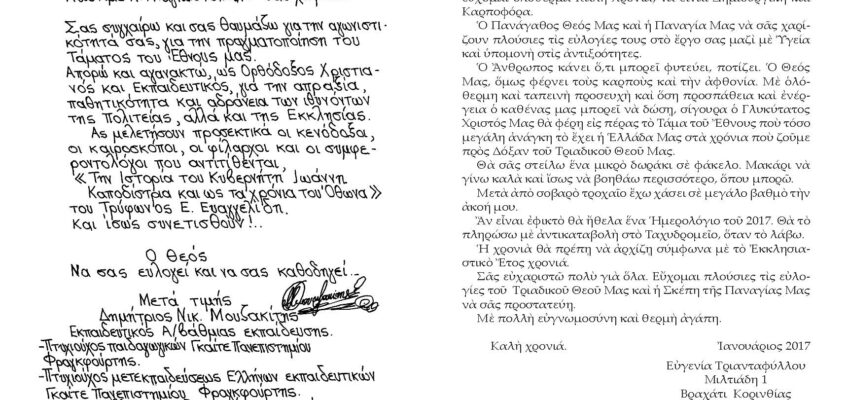 Σας συγχαίρω και σας θαυμάζω για την αγωνιστι-
κότητα σας, για την πραγματοποίηση του
Τάματος του Έθνους μας.
Απορώ και αγανακτώ, ως Ορθόδοξος Χριστια-
νός και Εκπαιδευτικός, για την απραξία,
παθητικότητα και αδράνεια των ιθυνόντων
της πολιτείας, αλλά και της Εκκλησίας.
Ας μελετήσουν προσεκτικά οι κενόδοξοι,
οι καιροσκόποι, οι φίλαρχοι και οι συμφε-
ροντολόγοι που αντιτίθενται
«Την Ιστορία του Κυβερνήτη Ιωάννη
Καποδίστρια και ως τα χρόνια του Όθωνα»
του Τρύφωνος Ε. Ευαγγελίδη.
Και ίσως συνετισθούν!..
Ο Θεός
Να σας ευλογεί και να σας καθοδηγεί..
Μετά τιμής
Δημήτριος Νικ. Μουζακίτης
Εκπαιδευτικός Α/βάθμιας εκπαίδευσης.
-Πτυχιούχος παιδαγωγικών Γκαίτε Πανεπιστημίου
Φραγκφούρτης.
-Πτυχιούχος μετεκπαιδεύσεως Ελλήνων εκπαιδευτικών
Γκαίτε Πανεπιστημίου Φραγκφούρτης.
Καρποφόρα.
Ὁ Πανάγαθος Θεός Μας καὶ ἡ Παναγία Μας νὰ σᾶς χαρί-
ζουν πλούσιες τὶς εὐλογίες τους στὸ ἔργο σας μαζὶ μὲ Ὑγεία
καὶ ὑπομονὴ στὶς ἀντιξοότητες.
Ὁ Ἄνθρωπος κάνει ὅ,τι μπορεῖ φυτεύει, ποτίζει. Ὁ Θεός
Μας, ὅμως φέρνει τοὺς καρποὺς καὶ τὴν ἀφθονία. Μὲ ὁλό-
θερμη καὶ ταπεινὴ προσευχὴ καὶ ὅση προσπάθεια καὶ ἐνέρ-
γεια ὁ καθένας μας μπορεῖ νὰ δώση, σίγουρα ὁ Γλυκύτατος
Χριστός Μας θὰ φέρη εἰς πέρας τὸ Τάμα τοῦ Ἔθνους ποὺ τόσο
μεγάλη ἀνάγκη τὸ ἔχει ἡ Ἑλλάδα Μας στὰ χρόνια ποὺ ζοῦμε
πρὸς Δόξαν τοῦ Τριαδικοῦ Θεοῦ Μας.
Θὰ σᾶς στείλω ἕνα μικρὸ δωράκι σὲ φάκελο. Μακάρι νὰ
γίνω καλὰ καὶ ἴσως νὰ βοηθάω περισσότερο, ὅπου μπορῶ.
Μετὰ ἀπὸ σοβαρὸ τροχαῖο ἔχω χάσει σὲ μεγάλο βαθμὸ τὴν
ἀκοή μου.
Ἂν εἶναι ἐφικτὸ θὰ ἤθελα ἕνα Ἡμερολόγιο τοῦ 2017. Θὰ τὸ
πληρώσω μὲ ἀντικαταβολὴ στὸ Ταχυδρομεῖο, ὅταν τὸ λάβω.
Ἡ χρονιὰ θὰ πρέπη νὰ ἀρχίζη σύμφωνα μὲ τὸ Ἐκκλησια-
στικὸ Ἔτος χρονιά.
Σᾶς εὐχαριστῶ πολὺ γιὰ ὅλα. Εὔχομαι πλούσιες τὶς εὐλο-
γίες τοῦ Τριαδικοῦ Θεοῦ Μας καὶ ἡ Σκέπη τῆς Παναγίας Μας
νὰ σᾶς προστατεύη.
Μὲ πολλὴ εὐγνωμοσύνη καὶ θερμὴ ἀγάπη.
Καλὴ χρονιά. Ἰανουάριος 2017
Εὐγενία Τριανταφύλλου
Μιλτιάδη 1
Βραχάτι Κορινθίας